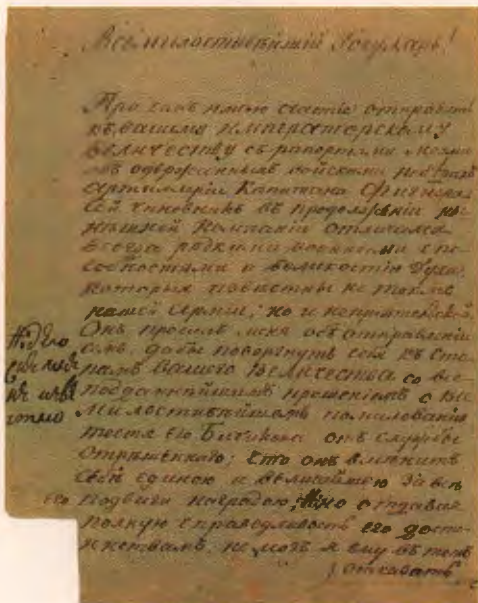 Всемилостивѣйшій Государь!
При семъ имѣю счастіе отправить
къ вашему Императорскому
Величеству съ рапортами моими
объ одержанныхъ войсками побѣдахъ
Артиллеріи Капитана Фигнера.
Сей Чиновникъ въ продолженіи ны-
нѣшней Кампаніи отличался
всегда рѣдкими военными спо-
собностями и великостію Духа,
которыя извѣстны не токмо
нашей Арміи, но и непріятельской.
Онъ просилъ меня объ отправленіи
его, дабы повергнуть себя къ сто-
памъ Вашего Величества со все-
подданнѣйшимъ прошеніемъ о Все-
Милостивѣйшемъ помилованіи
тестя его Бибикова отъ службы
Отрѣшеннаго; Сто онъ вмѣнитъ
себѣ единою и величайшею за всѣ
его подвиги наградою, Но отдавая
полную справедливость его досто-
инствамъ, не могъ я ему въ томъ
отказать